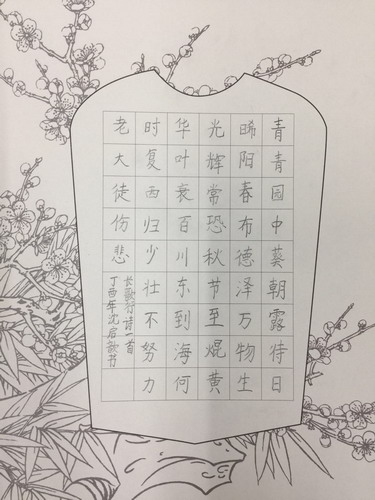 青青园中葵朝露待日
晞阳春布德泽万物生
光辉常恐秋节至焜黄
华叶衰百川东到海何
时复西归少壮不努力
老大徒伤悲
长歌行诗一首
丁酉年沈启书